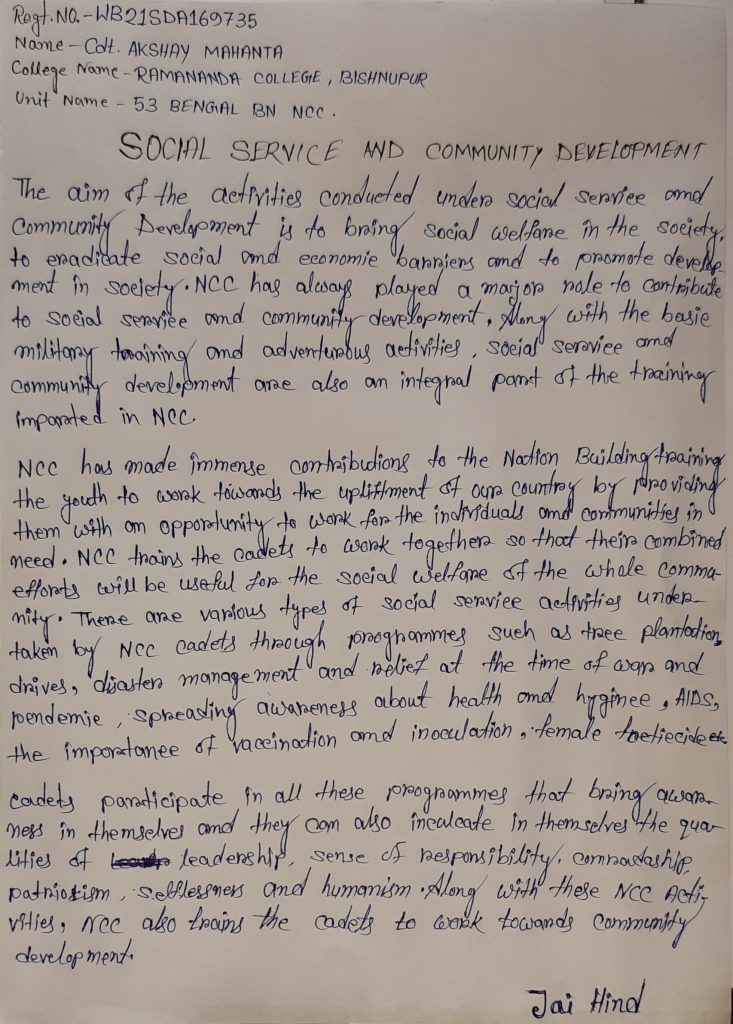 Regt. NO. - WB21SDA169735
Name - Cdt. AKSHAY MAHANTA
College Name - RAMANANDA COLLEGE, BISHNUPUR
Unit Name - 53 BENGAL BN NCC.
SOCIAL SERVICE AND COMMUNITY DEVELOPMENT
The aim of the activities conducted under social service and
Community Development is to bring social welfare in the society,
to eradicate social and economic barriers and to promote develop-
ment in society. NCC has always played a major role to contribute
to social service and community development. Along with the basic
military training and adventurous activities, social service and
community development are also an integral part of the training
imparted in NCC.
NCC has made immense contributions to the Nation Building training
the youth to work towards the upliftment of our country by providing
them with an opportunity to work for the individuals and communities in
need. NCC trains the cadets to work together so that their combined
efforts will be useful for the social welfare of the whole commu-
nity. There are various types of social service activities under-
taken by NCC cadets through programmes such as tree plantation,
drives, disaster management and relief at the time of war and
pendemic, spreading awareness about health and hyginee, AIDS,
the importance of vaccination and inoculation, female foeticide etc
Cadets participate in all these programmes that bring awar-
ness in themselves and they can also inculcate in themselves the qua-
lities of leadership, sense of responsibility, comradaship,
patriotism, selflessness and humanism. Along with these NCC Acti-
vities, NCC also trains the cadets to work towards community
development.
Jai Hind